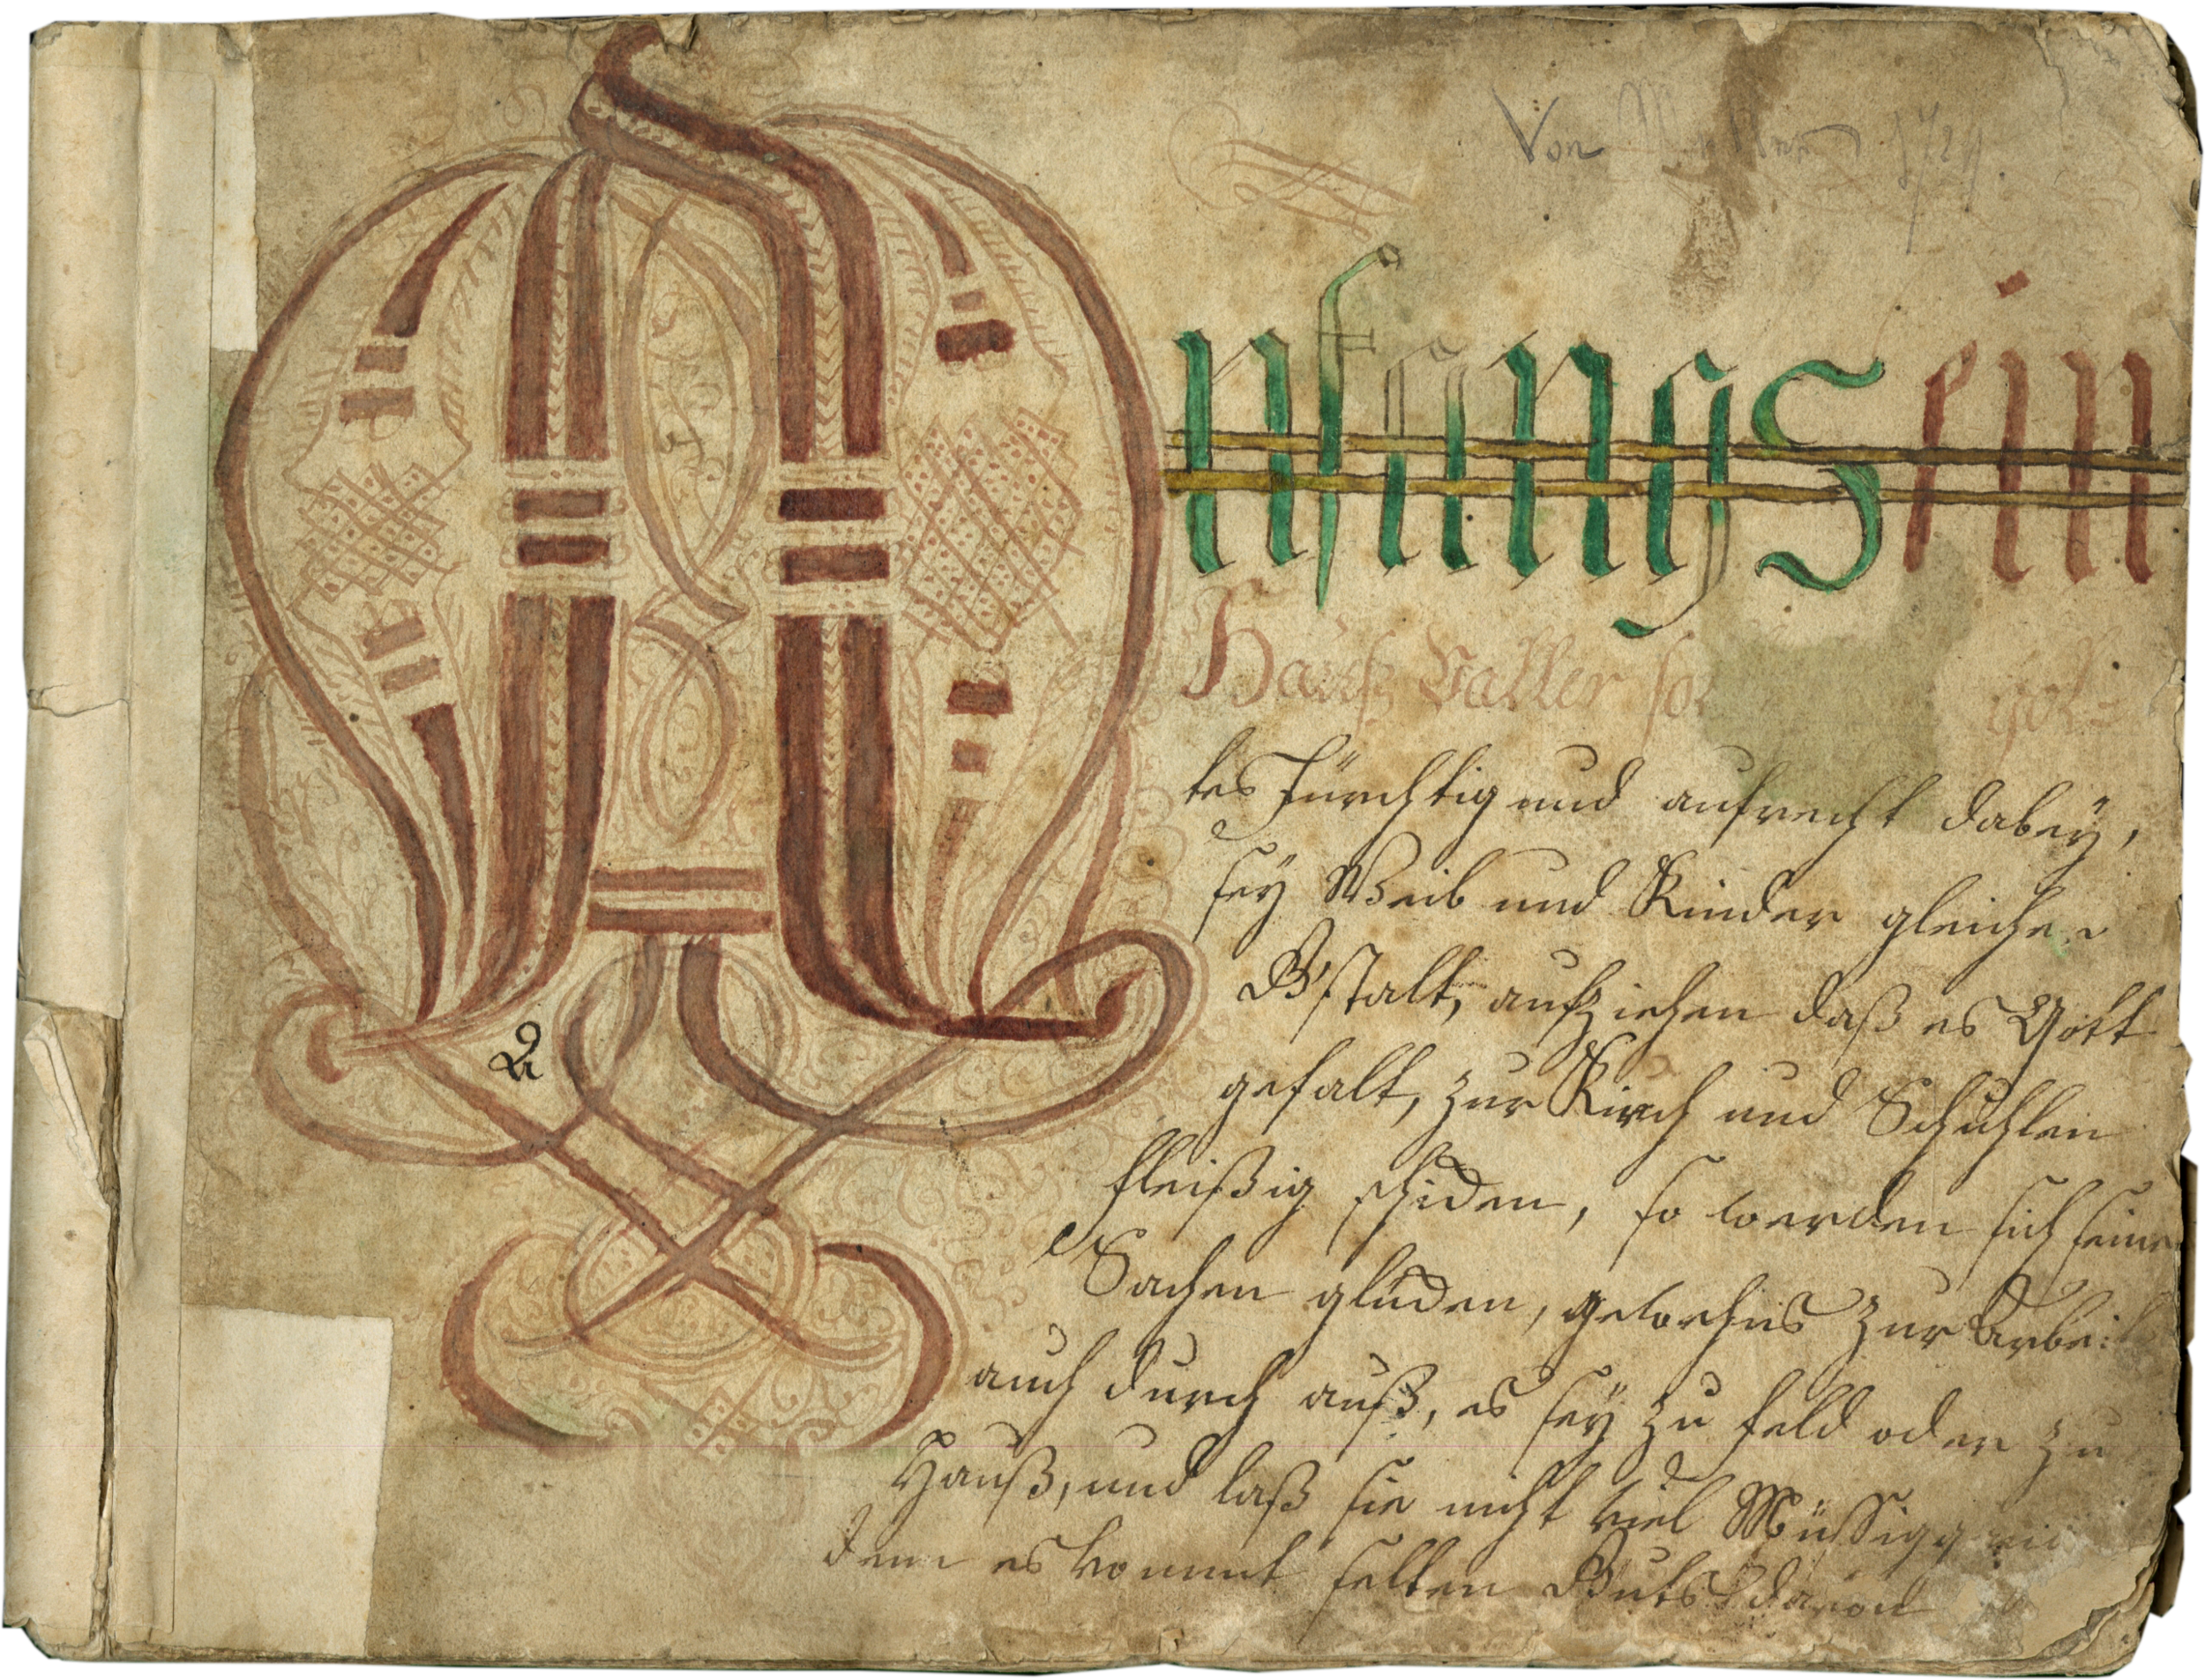 Von 1724
Anfangs ein
Hauß Vatter sol got=
tes fürchtig und aufrecht dabeÿ,
seÿ Weib und Kinder gleicher
Gstalt, aufziehen daß es Gott
gefalt, zur Kirch und Schuhlen
fleißig schiden, so werden sich seine
Sachen glüden, gewehns zur Arbeit
auch durch auß, es seÿ zu feld oder zu
Hauß, und laß sie nicht viel Müssigg
denn es kommt selten Guts davon
A